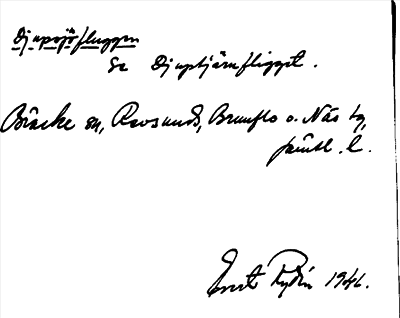 Djupsjöfluggen
Se Djuptjärnfligget.
Bräcke sn, Revsunds, Brunflo o. Näs tg,
Jämtl. l.
Ernst Rydén 1946.